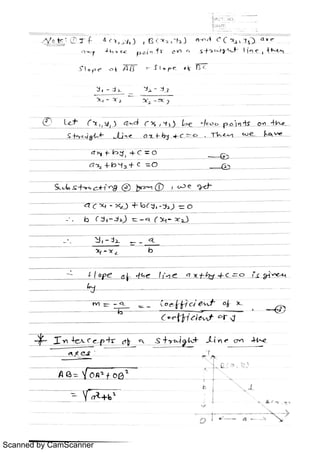 Note: ① If A(x₁, y₁), B(x₂, y₂) and C(x₃, y₃) are
any three points on a straight line, then
slope of AB = slope of BC
y₁ - y₂ / x₁ - x₂ = y₂ - y₃ / x₂ - x₃
② Let (x₁, y₁) and (x₂, y₂) be two points on the
straight line ax + by + c = 0. Then we have
ax₁ + by₁ + c = 0
ax₂ + by₂ + c = 0
Substracting ② from ①, we get
a(x₁ - x₂) + b(y₁ - y₂) = 0
∴ b(y₁ - y₂) = -a(x₁ - x₂)
∴ y₁ - y₂ / x₁ - x₂ = - a / b
∴ slope of the line ax + by + c = 0 is given
by
m = - a / b = - coefficient of x / coefficient of y
* Intercepts of a straight line on the
axes:
AB = √OA² + OB²
= √a² + b²
b
O a
Scanned by CamScanner